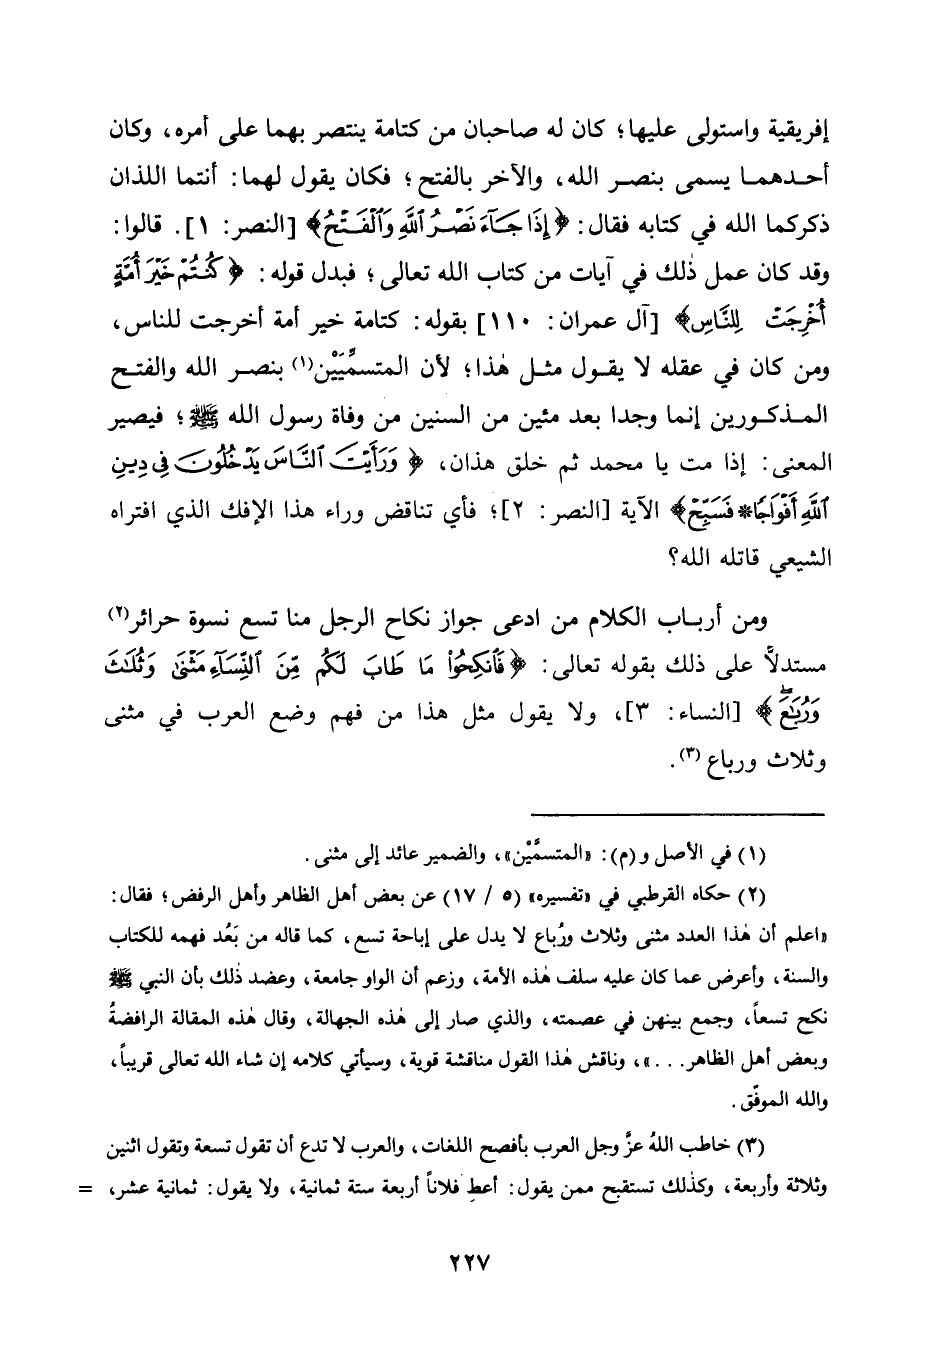 إفريقية واستولى عليها؛ كان له صاحبان من كتامة ينتصر بهما على أمره، وكان
أحدهما يسمى بنصر الله، والآخر بالفتح؛ فكان يقول لهما: أنتما اللذان
ذكركما الله في كتابه فقال: ﴿إِذَا جَآءَ نَصْرُ ٱللَّهِ وَٱلْفَتْحُ﴾ [النصر: ١]. قالوا:
وقد كان عمل ذٰلك في آيات من كتاب الله تعالى؛ فبدل قوله: ﴿كُنتُمْ خَيْرَ أُمَّةٍ
أُخْرِجَتْ لِلنَّاسِ﴾ [آل عمران: ١١٠] بقوله: كتامة خير أمة أخرجت للناس،
ومن كان في عقله لا يقول مثل هٰذا؛ لأن المتسمِّيَيْن(١) بنصر الله والفتح
المذكورين إنما وجدا بعد مئين من السنين من وفاة رسول الله ﷺ؛ فيصير
المعنى: إذا مت يا محمد ثم خلق هذان، ﴿وَرَأَيْتَ ٱلنَّاسَ يَدْخُلُونَ فِى دِينِ
ٱللَّهِ أَفْوَاجًا * فَسَبِّحْ﴾ الآية [النصر: ٢]؛ فأي تناقض وراء هذا الإفك الذي افتراه
الشيعي قاتله الله؟
ومن أرباب الكلام من ادعى جواز نكاح الرجل منا تسع نسوة حرائر(٢)
مستدلاً على ذلك بقوله تعالى: ﴿فَٱنكِحُوا۟ مَا طَابَ لَكُم مِّنَ ٱلنِّسَآءِ مَثْنَىٰ وَثُلَـٰثَ
وَرُبَـٰعَ ۖ﴾ [النساء: ٣]، ولا يقول مثل هذا من فهم وضع العرب في مثنى
وثلاث ورباع(٣).
(١) في الأصل و(م): «المتسمَّيْن»، والضمير عائد إلى مثنى.
(٢) حكاه القرطبي في «تفسيره» (٥ / ١٧) عن بعض أهل الظاهر وأهل الرفض؛ فقال:
«اعلم أن هٰذا العدد مثنى وثلاث ورُباع لا يدل على إباحة تسع، كما قاله من بَعُد فهمه للكتاب
والسنة، وأعرض عما كان عليه سلف هٰذه الأمة، وزعم أن الواو جامعة، وعضد ذٰلك بأن النبي ﷺ
نكح تسعاً، وجمع بينهن في عصمته، والذي صار إلى هٰذه الجهالة، وقال هٰذه المقالة الرافضةُ
وبعض أهل الظاهر...»، وناقش هٰذا القول مناقشة قوية، وسيأتي كلامه إن شاء الله تعالى قريباً،
والله الموفّق.
(٣) خاطب اللهُ عزَّ وجل العرب بأفصح اللغات، والعرب لا تدع أن تقول تسعة وتقول اثنين
وثلاثة وأربعة، وكذٰلك تستقبح ممن يقول: أعطِ فلاناً أربعة ستة ثمانية، ولا يقول: ثمانية عشر، =
٢٢٧